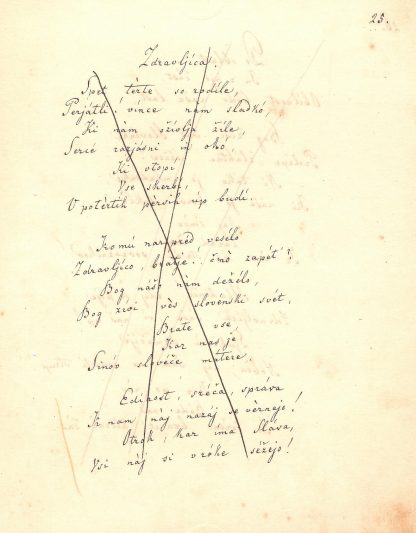 25.
Zdravljíca.
Spet tèrte so rodíle,
Perjátli, vínce nam sladkó,
Ki nam ožívlja žíle,
Sercé razjásni in okó,
Ki vtopi
Vse skerbí,
V potèrtih pèrsih up budí.
Komú narpréd vesélo
Zdravljíco, bratje! čmò zapét'?
Bog našo nam dežélo,
Bog živi vès slovénski svét,
Brate vse,
Kar nas je
Sinóv slovéče mátere.
Edínost, sréča, správa
K nam naj nazáj se vèrnejo!
Otrók, kar ima Sláva,
Vsi naj si v róke séžejo!